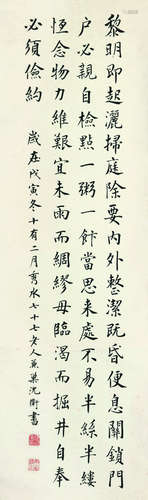 黎明即起灑掃庭除要內外整潔既昏便息關鎖門
户必親自檢點一粥一飰當思來處不易半絲半縷
恆念物力維艱宜未雨而綢繆毋臨渴而掘井自奉
必須儉約
歲在戊寅冬十有二月秀水七十七老人兼巢沈衛書